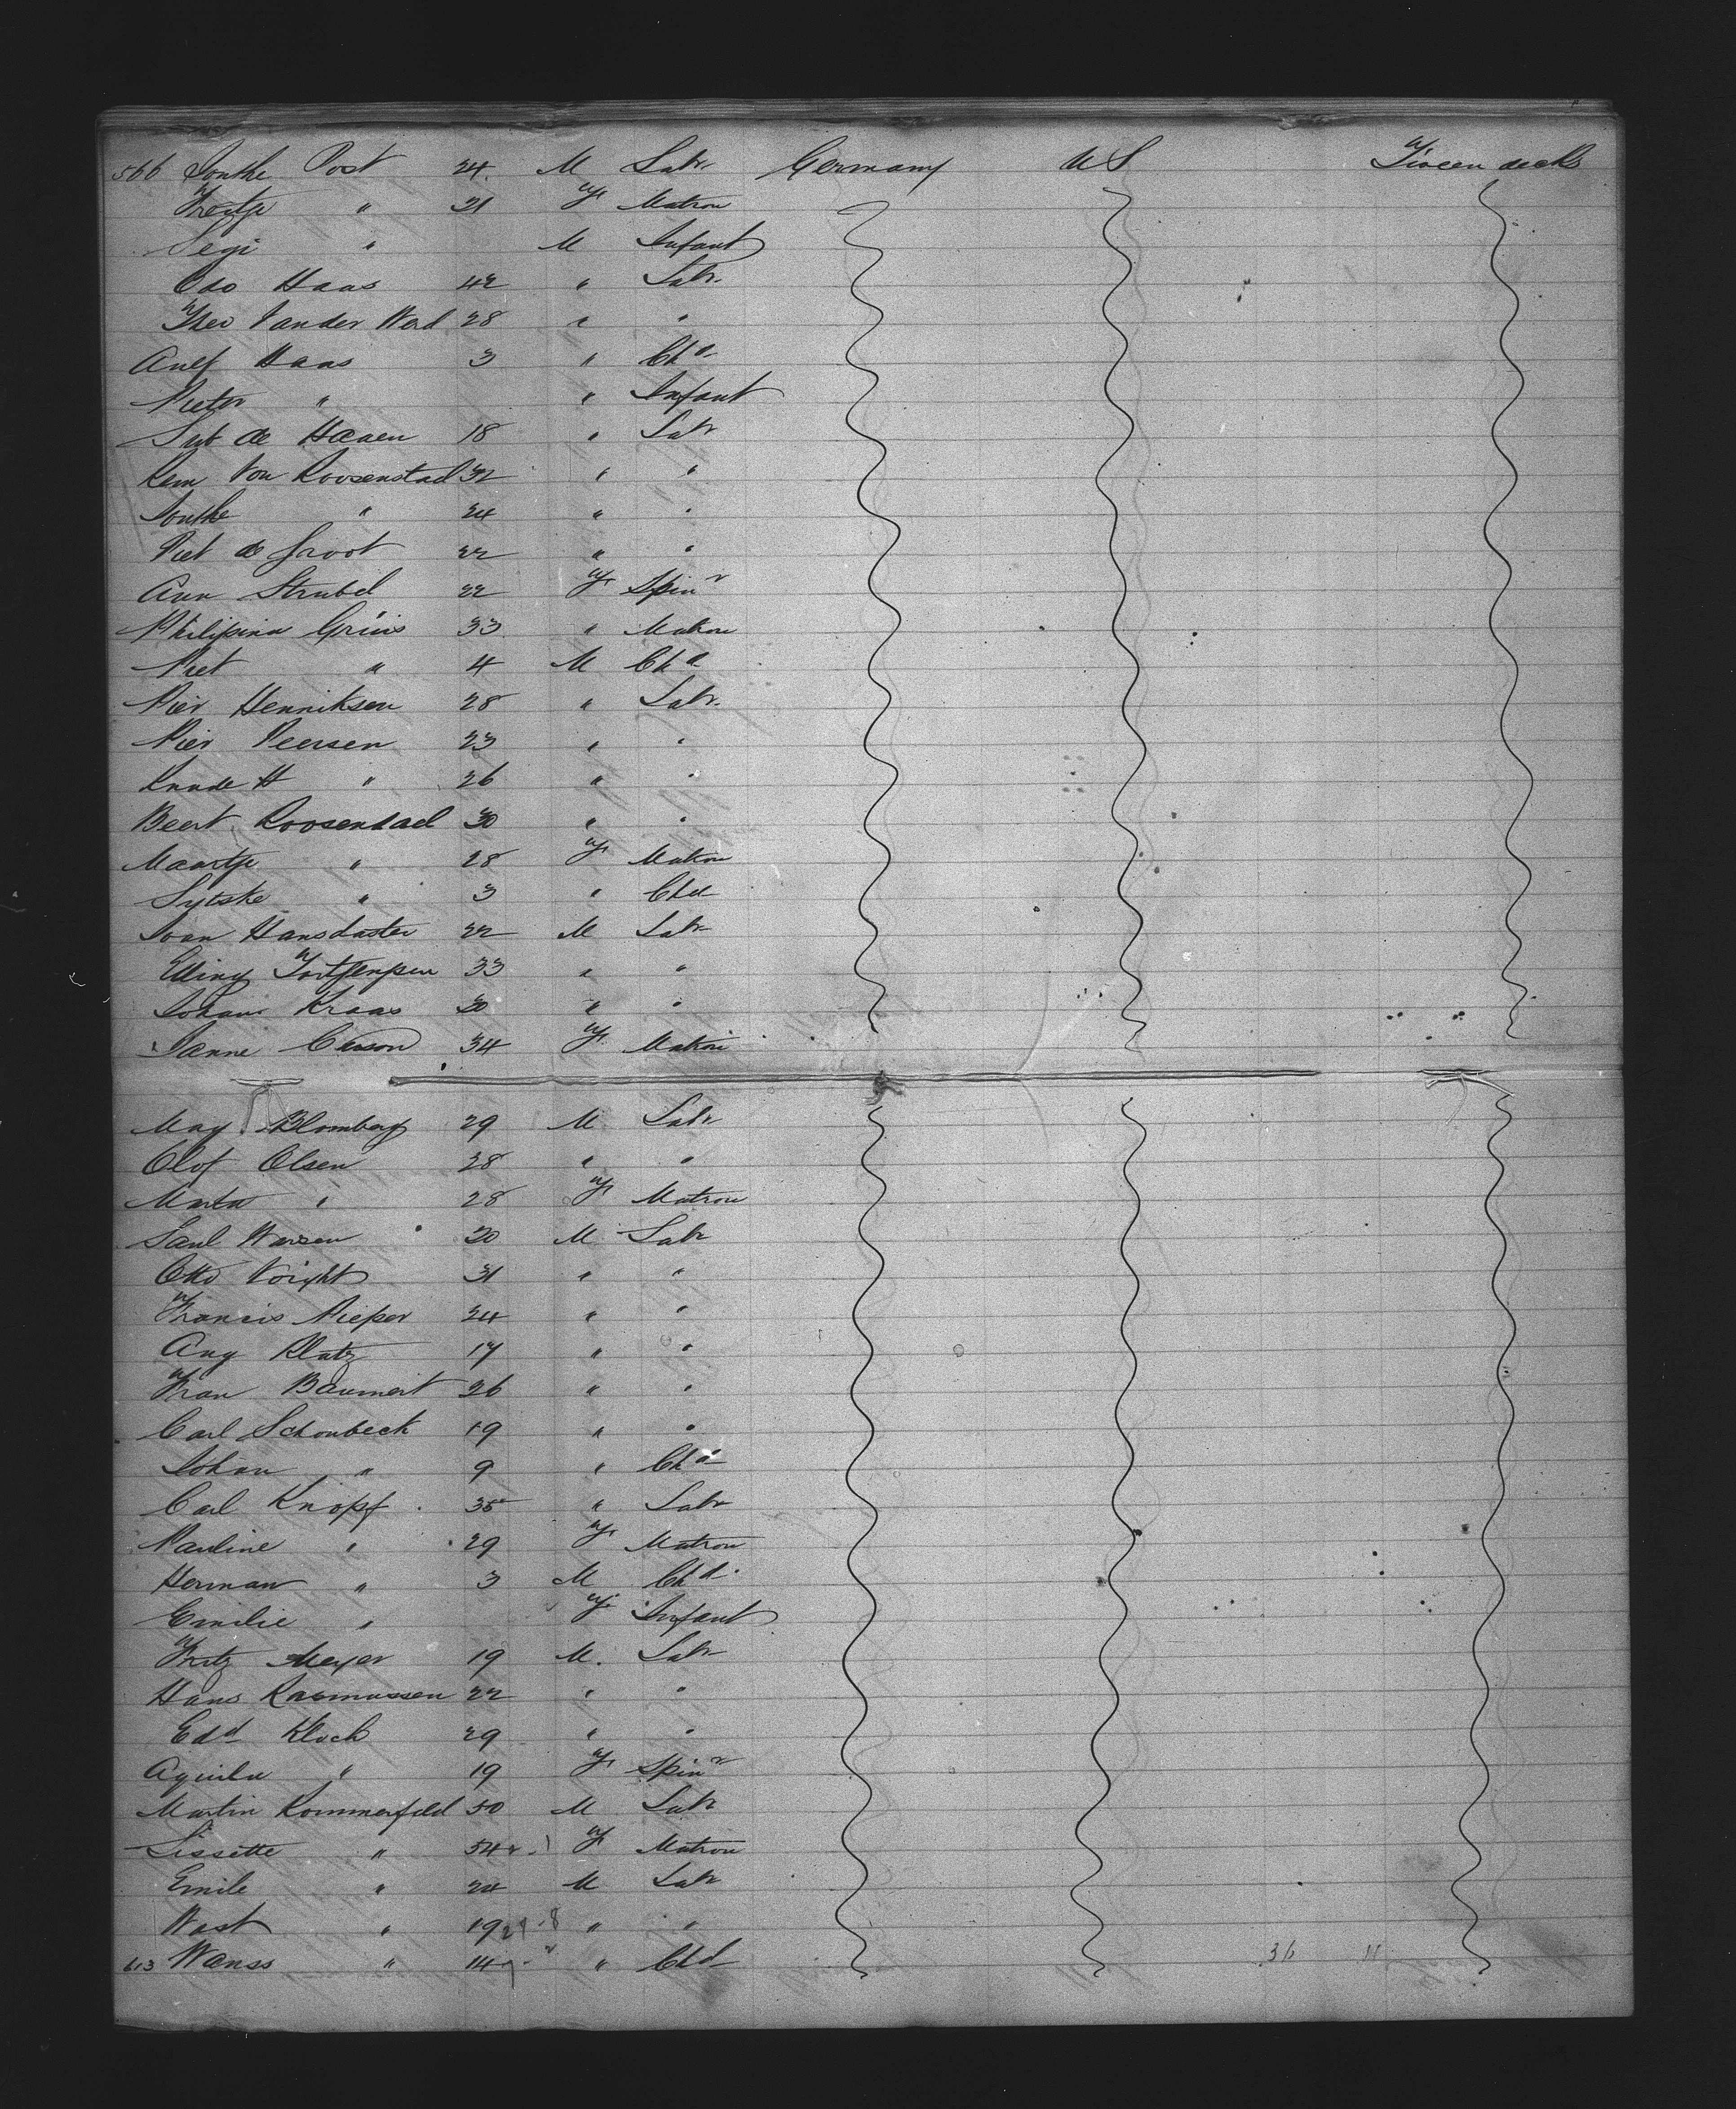 566 Jonthe Post 24 M Labr Germany U S Tween decks
Froutje " 21 F Matron
Segi " M Infant
Odo Haas 42 " Labr
Theo Vander Werd 28 " "
Aulf Haas 3 " Chd
Pieter " " Infant
Sub de Haaen 18 " Labr
Rem Von Roosenstad 32 " "
Jonthe " 24 " "
Piet de Groot 22 " "
Ann Strubel 22 F Spinr
Philipina Grüis 33 " Matron
Piet " 4 M Chd
Pier Henriksen 28 " Labr
Pier Peersen 23 " "
Knude H " 26 " "
Beert Roosendael 30 " "
Maartje " 28 F Matron
Sytske " 3 " Chd
Ivan Hansdaster 22 M Labr
Elling 33 " "
Johani Kraas 20 " "
Janne 34 F Matron
May Blomberg 29 M Labr
Olof Olsen 28 " "
Marta " 28 F Matron
Saul Warsen 20 M Labr
Otto Voight 31 " "
Francis Pieper 24 " "
Aug Klatz 17 " "
Fran Baumert 26 " "
Carl Schonbeck 19 " "
Johan " 9 " Chd
Carl Knopf 35 " Labr
Pauline " 29 F Matron
Herman " 3 M Chd
Emilie " F Infant
Fritz Meyer 19 M. Labr
Hans Rasmussen 22 " "
Edd Kloch 29 " "
Aguila " 19 F Spinr
Martin Kommerfeld 50 M Labr
Lissette " 54 F Matron
Emile " 24 M Labr
Wast " 19 " "
613 Wanss " 14 " Chd 36 11